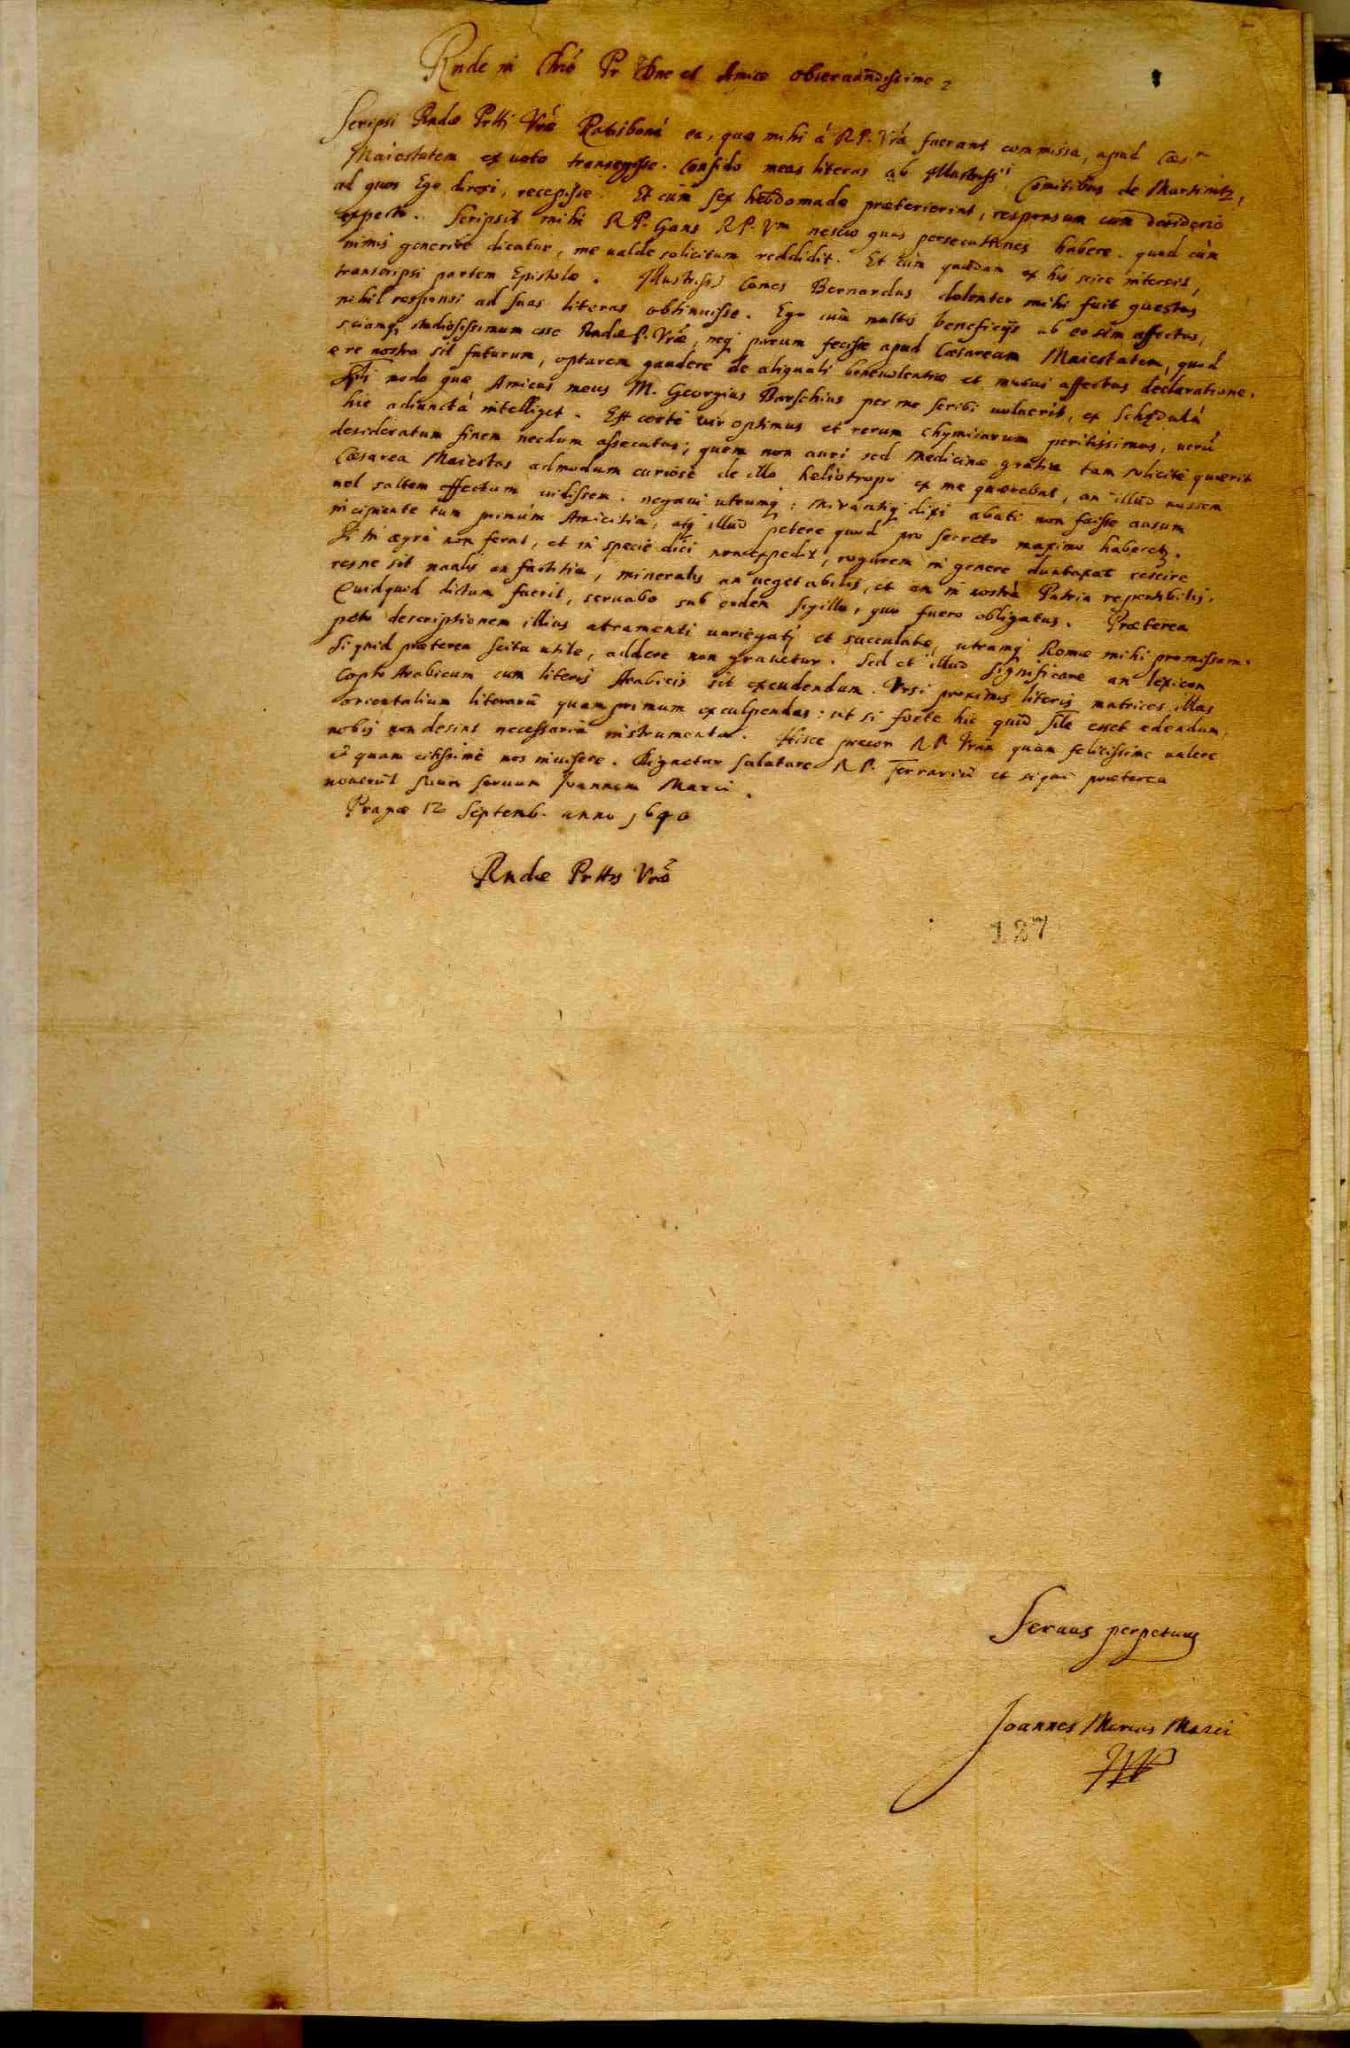 Rnde in Chrō Pr Dne et Amice obseruandissime
Scripsi Rndæ Prtti Vræ Ratisbonâ ea, quæ mihi á R.P. Vrâ fuerant commissa, apud Cæs
Maiestatem ex uoto transegisse. Confido meas literas ab Illustriss Comitibus de Martinitz,
ad quos Ego direxi, recepisse. Et cùm sex hebdomadæ præterierint, responsum cum desiderio
expecto. Scripsit mihi R.P. Gans R.P. Vm nescio quas persecutiones habere. quod cùm
nimis genericè dicatur, me ualde solicitum reddidit. Et cùm quædam ex his scire intersit,
transcripsi partem Epistolæ. Illustriss Comes Bernardus dolenter mihi fuit questus
nihil responsi ad suas literas obtinuisse. Ego cùm multis beneficijs ab eo sim affectus,
sciamq studiosissimum esse Rndæ P. Vræ, neq parum fecisse apud Cæsaream Maiestatem, quod
e re nostra sit futurum, optarem gaudere de aliquali beneuolentiæ et mutui affectus declaratione.
modo quæ Amicus meus M. Georgius Barschius per me scribi uoluerit, ex Schedulâ
hic adiunctâ intelliget. Est certè uir optimus et rerum chymicarum peritissimus, uerū
desideratum finem necdum assecutus; quem non auri sed Medicinæ gratiâ tam solicitè quærit
Cæsarea Maiestas admodum curiosè de illo heliotropio ex me quærebat, an illud nossem
uel saltem effectum uidissem. negaui utrumq: mirantiq dixi abati non fuisse ausum
incipiente tum primùm Amicitia, atq illud petere quod pro secreto maximo haberet.
Si in ægrè non ferat, et in specie dici non expedit, rogarem in genere duntaxat rescire
resne sit naalis an factitia, mineralis an uegetabilis, et an in nostrâ Patria reperibilis.
Quidquid dictum fuerit, seruabo sub eodem sigillo, quo fuero obligatus. Præterea
peto descriptionem illius atramenti uariegati et succulatæ, utramq Romæ mihi promissam.
Si quid præterea scitu utile, addere non grauetur. Sed et illud significare an lexicon
Copto Arabicum cum literis Arabicis sit excudendum. Vrsi proximis literis matrices illas
orientalium literarū quamprimum exculpendas: ut si forte hic quid sile esset edendum,
nobis non desint necessaria instrumenta. Hisce precor R.P. Vram quàm felicissimè ualere
quam citissimè nos inuisere. Dignetur salutare R.P. Ferrariū et siqui præterea
nouerūt suum seruum Joannem Marci.
Pragæ 12 Septemb. anno 1640
Rndæ Prttis Vræ
127
Seruus perpetuus
Joannes Marcus Marci